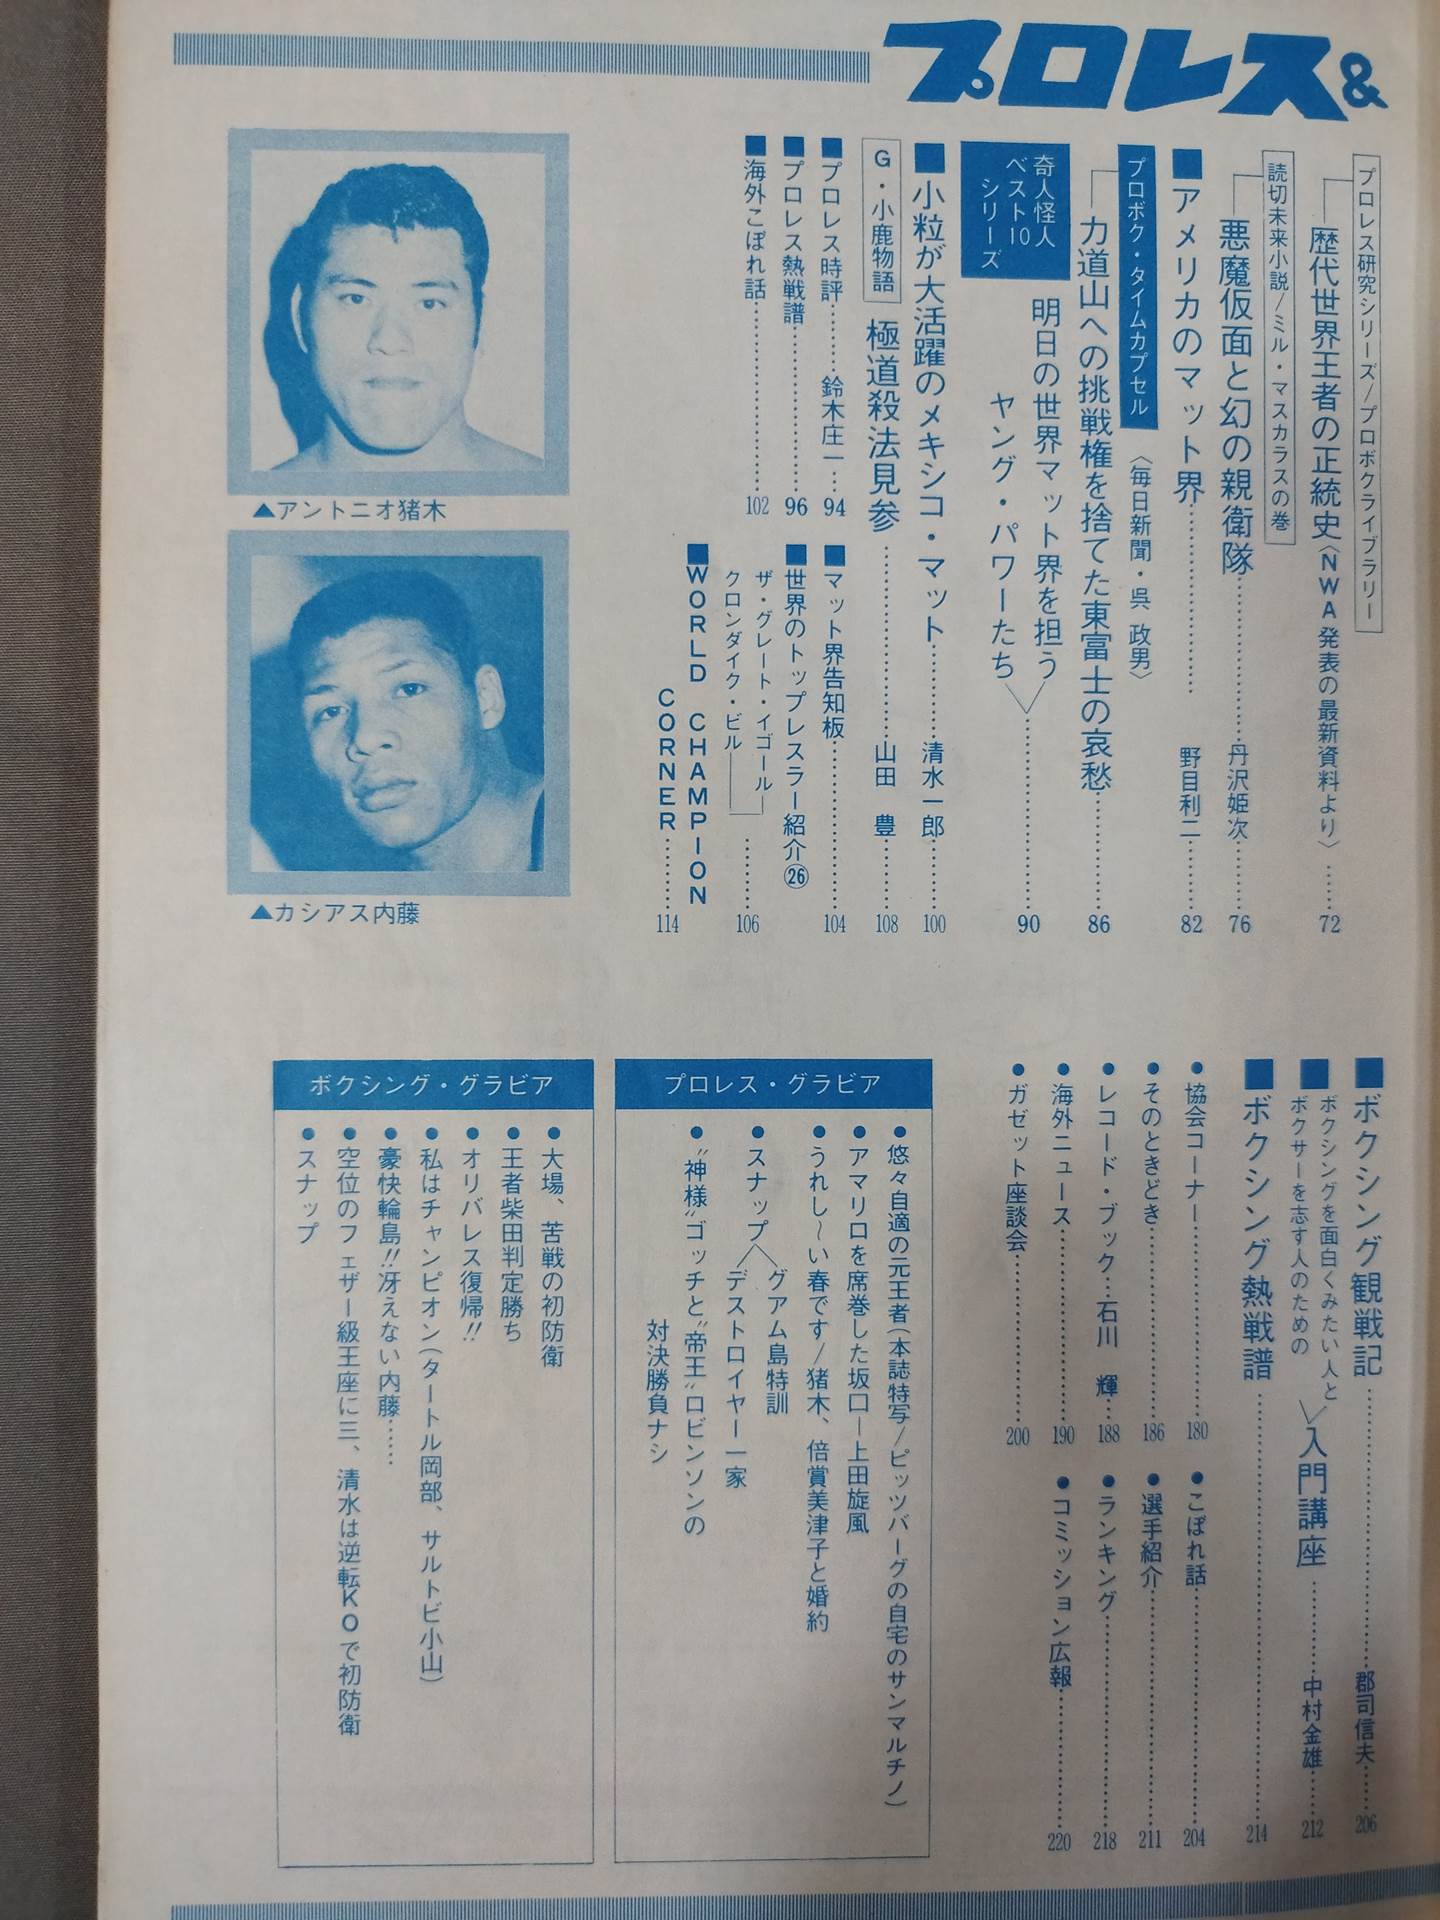 プロレス&
プロレス研究シリーズ/プロボクライブラリー
歴代世界王者の正統史〈NWA発表の最新資料より〉……72
読切未来小説/ミル・マスカラスの巻
悪魔仮面と幻の親衛隊……丹沢姫次……76
■アメリカのマット界……野目利二……82
プロボク・タイムカプセル
〈毎日新聞・呉 政男〉
力道山への挑戦権を捨てた東富士の哀愁……86
奇人怪人
ベスト10
シリーズ
明日の世界マット界を担う
ヤング・パワーたち……90
■小粒が大活躍のメキシコ・マット……清水一郎……100
G・小鹿物語
極道殺法見参……山田 豊……108
■プロレス時評……鈴木庄一…94
■プロレス熱戦譜……96
■海外こぼれ話……102
■マット界告知板……104
■世界のトップレスラー紹介㉖
ザ・グレート・イゴール
クロンダイク・ビル……106
■WORLD CHAMPION
CORNER……114
▲アントニオ猪木
▲カシアス内藤
■ボクシング観戦記……郡司信夫……206
■ボクシングを面白くみたい人と
ボクサーを志す人のための
入門講座……中村金雄……212
■ボクシング熱戦譜……214
●協会コーナー……180
●そのときどき……186
●レコード・ブック…石川 輝…188
●海外ニュース……190
●ガゼット座談会……200
●こぼれ話……204
●選手紹介……211
●ランキング……218
●コミッション広報……220
プロレス・グラビア
●悠々自適の元王者(本誌特写/ピッツバーグの自宅のサンマルチノ)
●アマリロを席巻した坂口―上田旋風
●うれし〜い春です/猪木、倍賞美津子と婚約
●スナップ
グアム島特訓
デストロイヤー一家
●"神様"ゴッチと"帝王"ロビンソンの
対決勝負ナシ
ボクシング・グラビア
●大場、苦戦の初防衛
●王者柴田判定勝ち
●オリバレス復帰!!
●私はチャンピオン(タートル岡部、サルトビ小山)
●豪快輪島!!冴えない内藤……
●空位のフェザー級王座に三、清水は逆転KOで初防衛
●スナップ